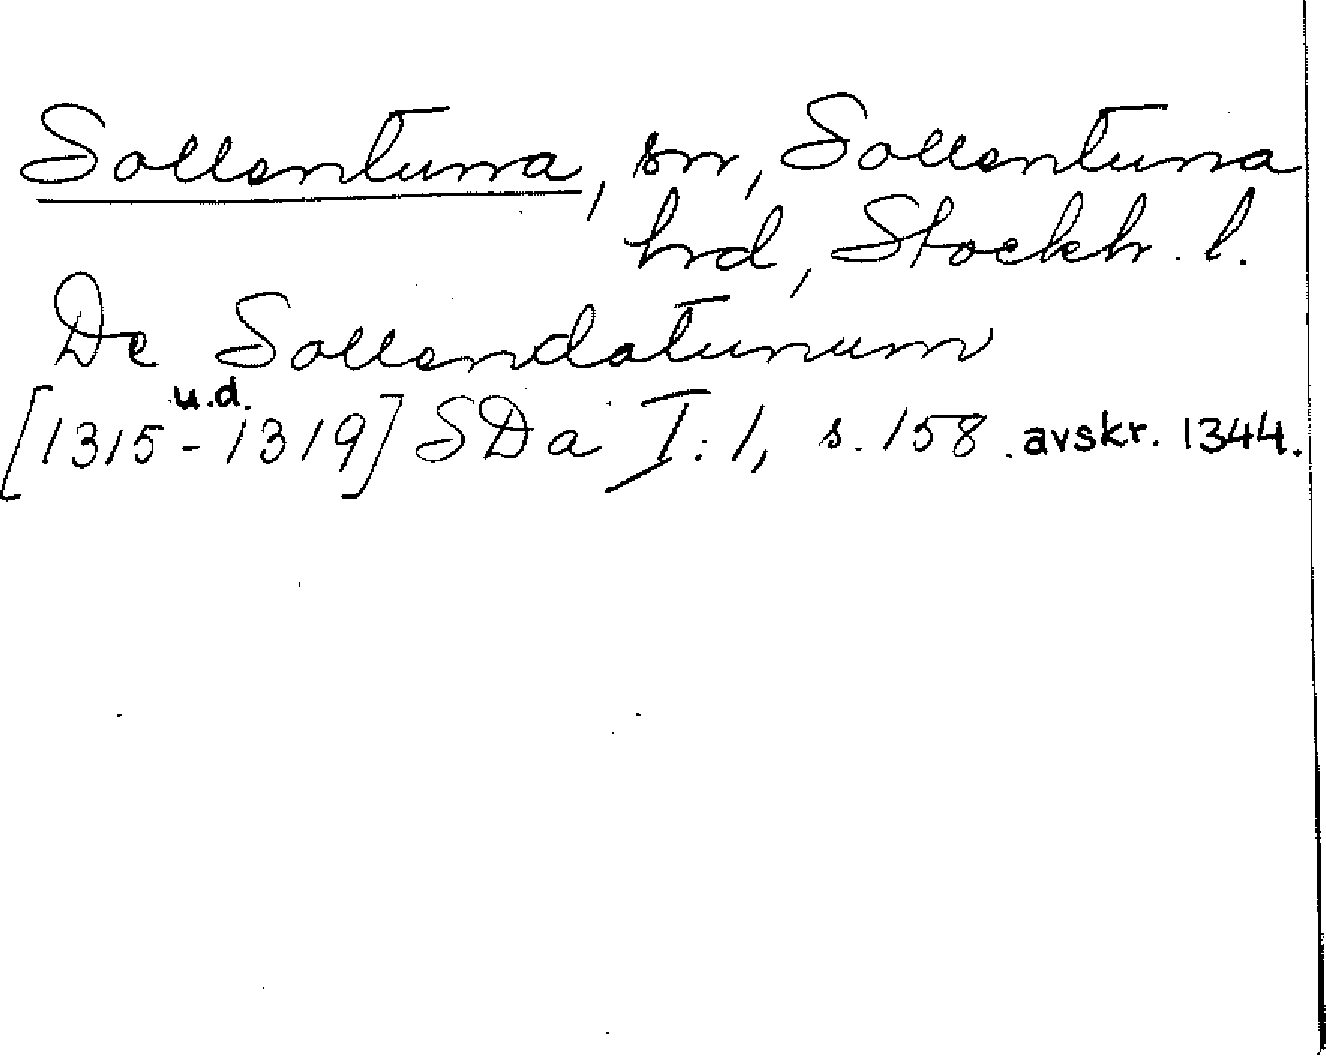 Sollentuna, sn, Sollentuna
hd, Stockh. l.
De Sollendatunum
u.d.
[1315-1319] SDa I:1, s. 158. avskr. 1344.